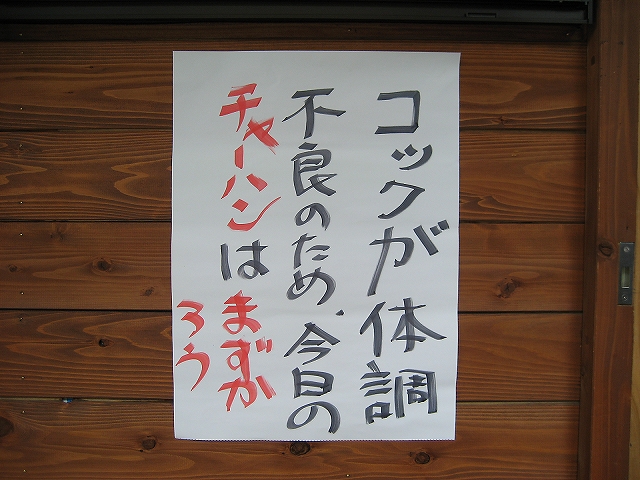 コックが体調
不良のため、今日の
チャーハンはまずか
ろう